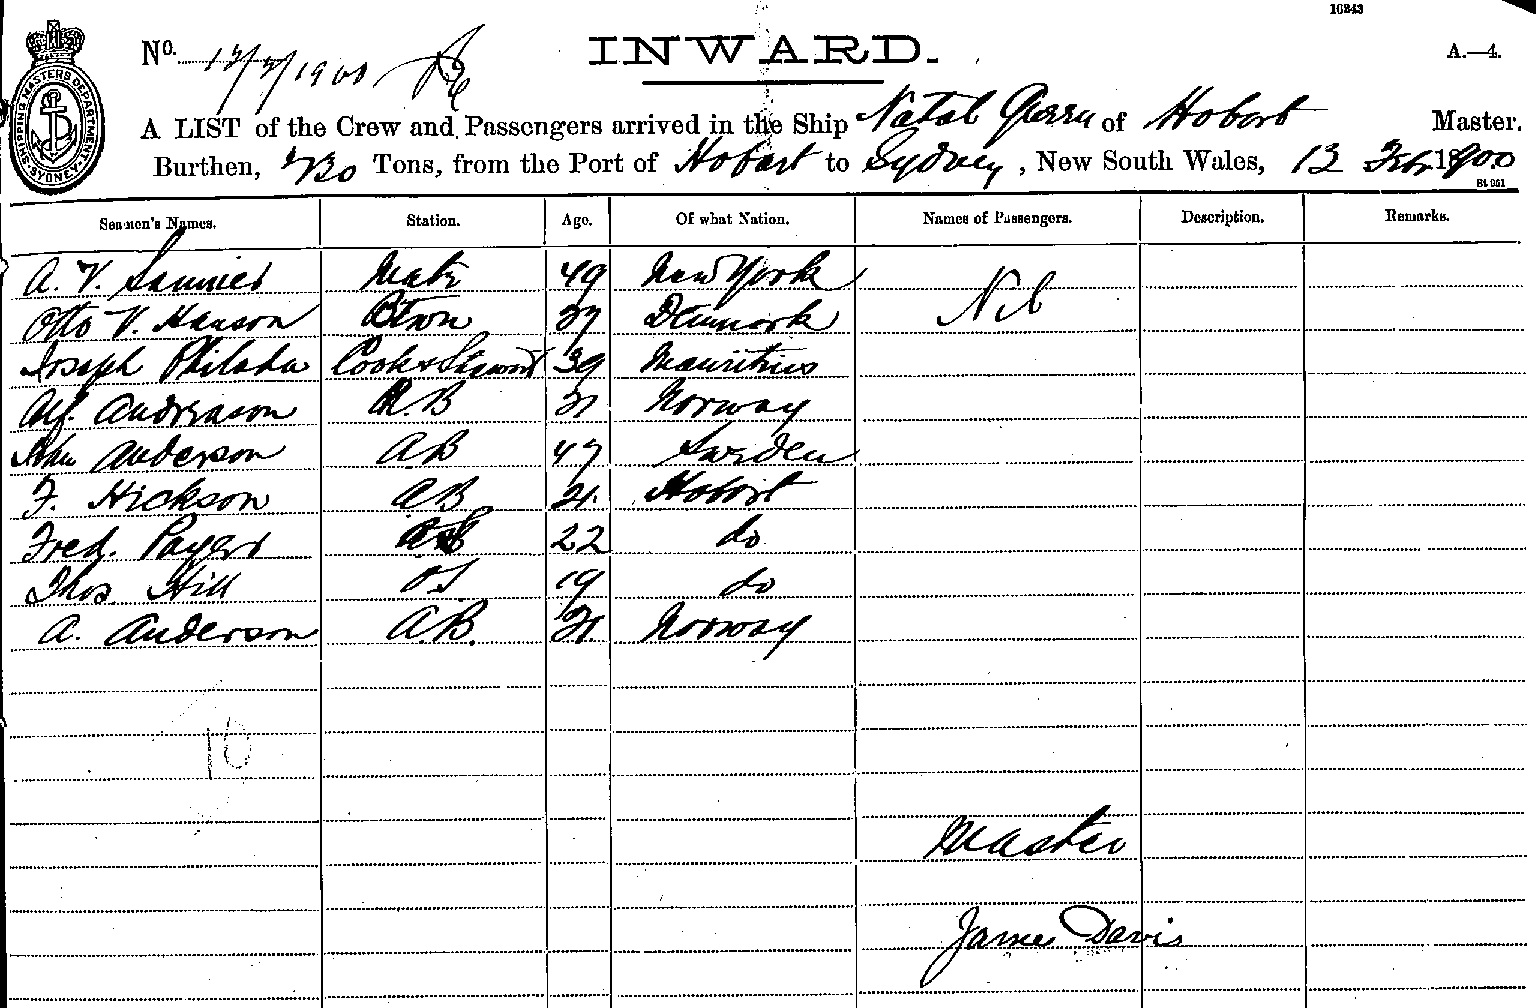 10243
No. 13/2/1900
INWARD.
A.—4.
A LIST of the Crew and Passengers arrived in the Ship Natal Queen of Hobart Master.
Burthen, Tons, from the Port of Hobart to Sydney, New South Wales, 13 Feb. 1900
SHIPPING MASTERS DEPARTMENT SYDNEY
Seamen's Names. Station. Age. Of what Nation. Names of Passengers. Description. Remarks.
A. V. Mate 49 New York Nil
Otto V. Hanson 37 Denmark
Joseph Cook & Steward 39 Mauritius
Alf. Andreason A.B 21 Norway
John Anderson AB 47 Sweden
F. Hickson AB 21. Hobart
Fred. 22 do
Thos Hill OS 19 do
A. Anderson AB. 21. Norway
10
Master
James Davis